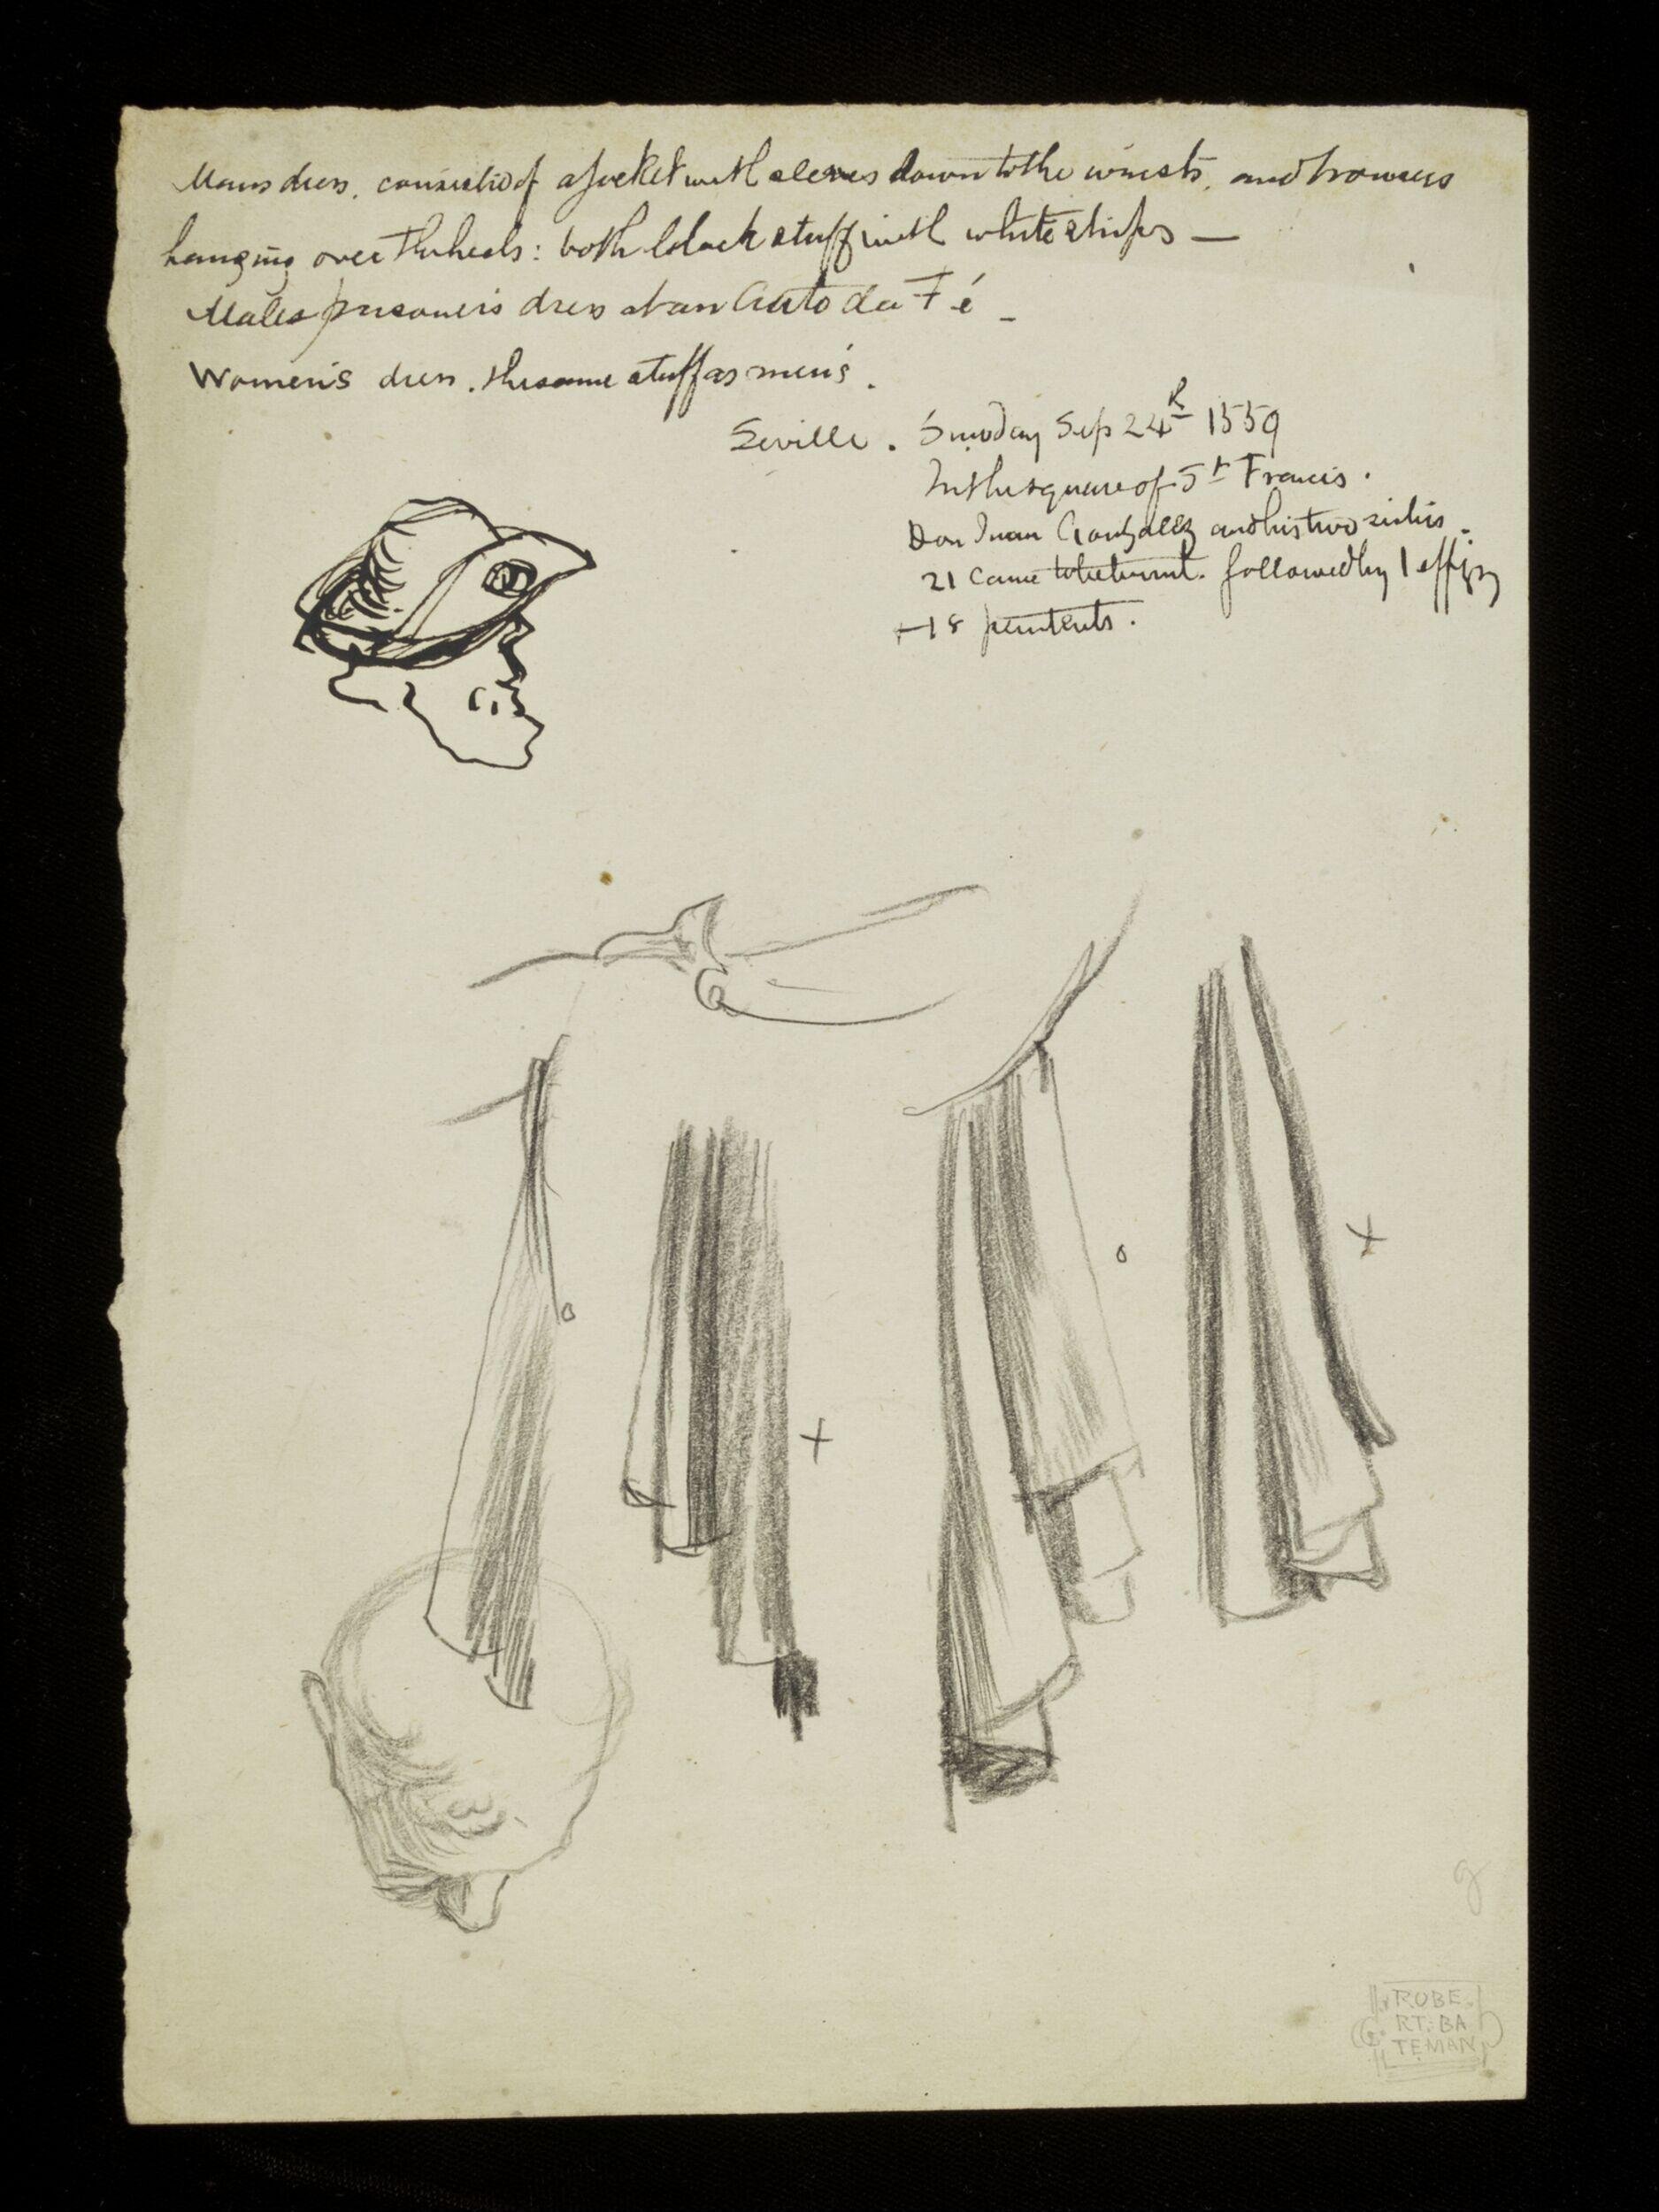 Mans dress. consisted of a Jacket with sleeves down to the wrists, and trowsers
hanging over the heels: both black stuff with white strips —
Males prisoners dress at an Auto da Fé –
Women's dress. the same stuff as men's.
Seville. Sunday Sep 24th 1559
In the square of St Francis.
Don Juan Gonzallez and his two sisters.
21 came to be burnt. followed by 1 effigy
+18 penitents.
g
ROBE
RT. BA
TEMAN